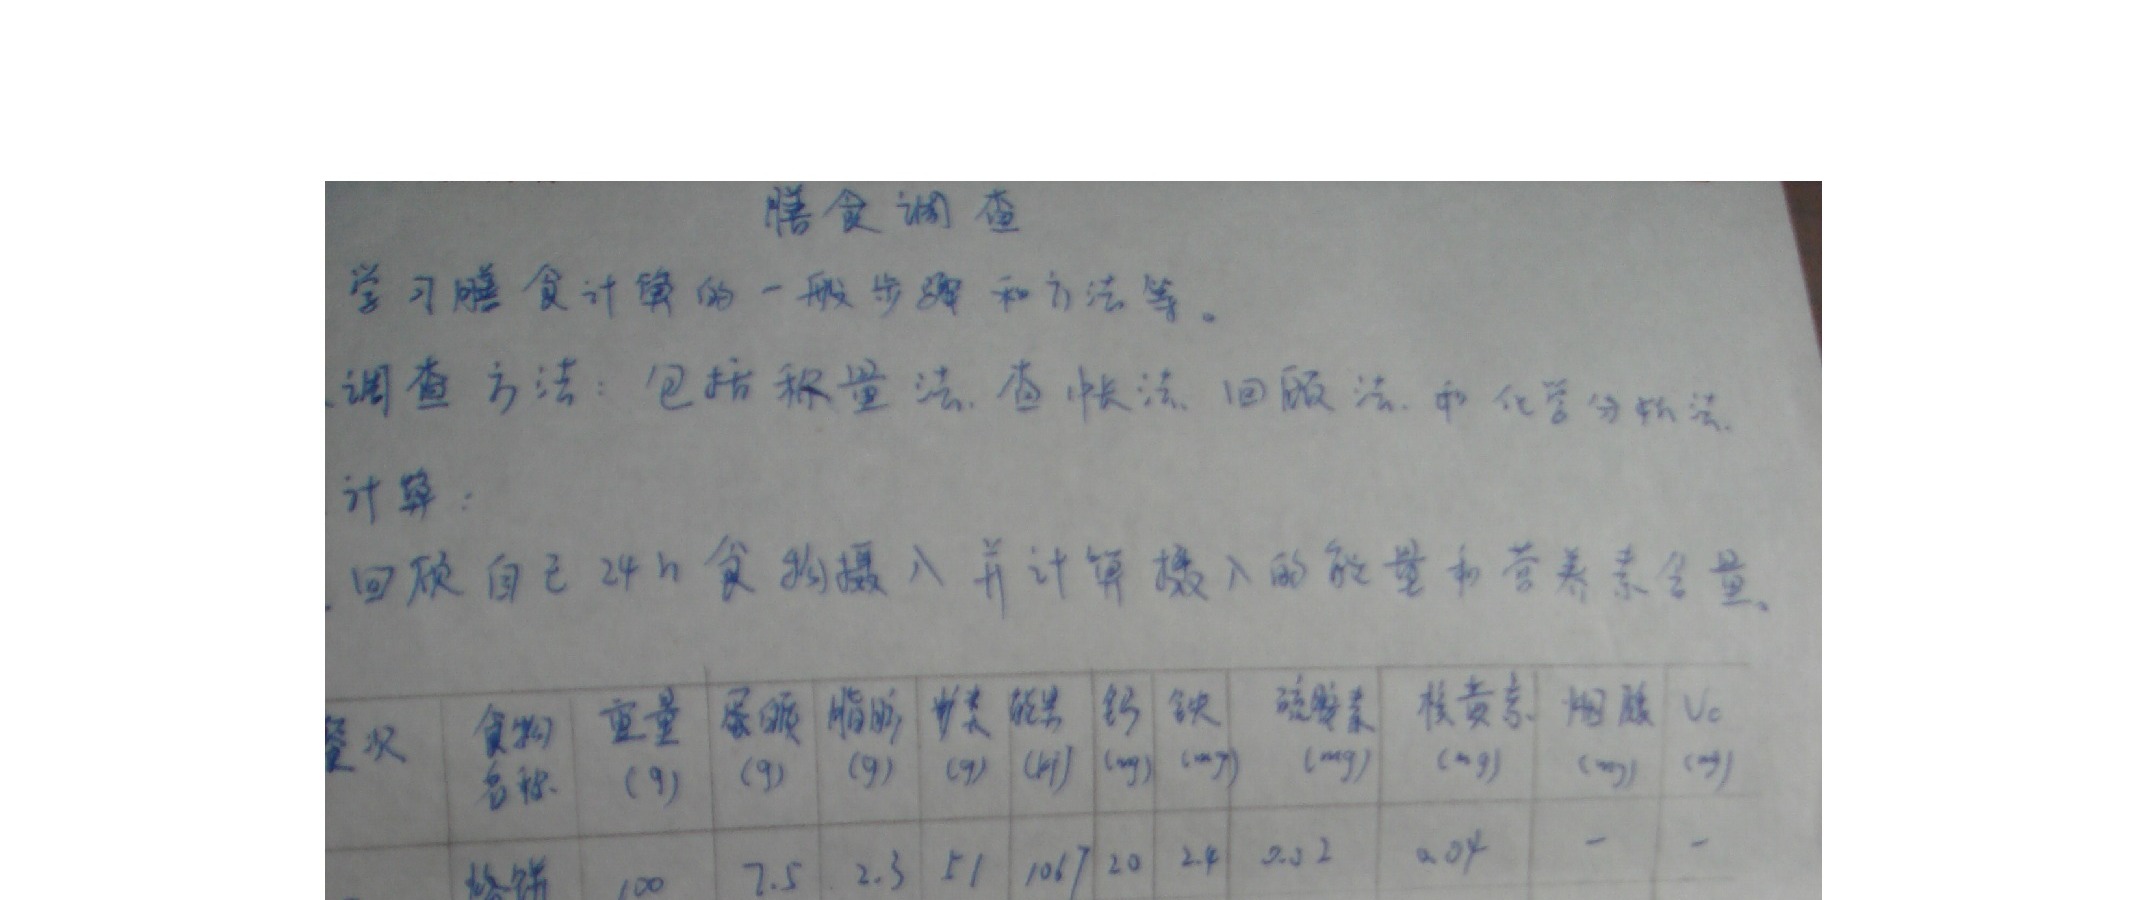 膳食调查
学习膳食计算的一般步骤和方法等。
调查方法：包括称量法、查帐法、回顾法、和化学分析法、
计算：
回顾自己24h食物摄入并计算摄入的能量和营养素含量。
餐次 食物名称 重量(g) 蛋白质(g) 脂肪(g) 糖类(g) 能量(kj) 钙(mg) 铁(mg) 硫胺素(mg) 核黄素(mg) 烟酸(mg) Vc(mg)
烙饼 100 7.5 2.3 51 1067 20 2.4 0.02 0.04 - -